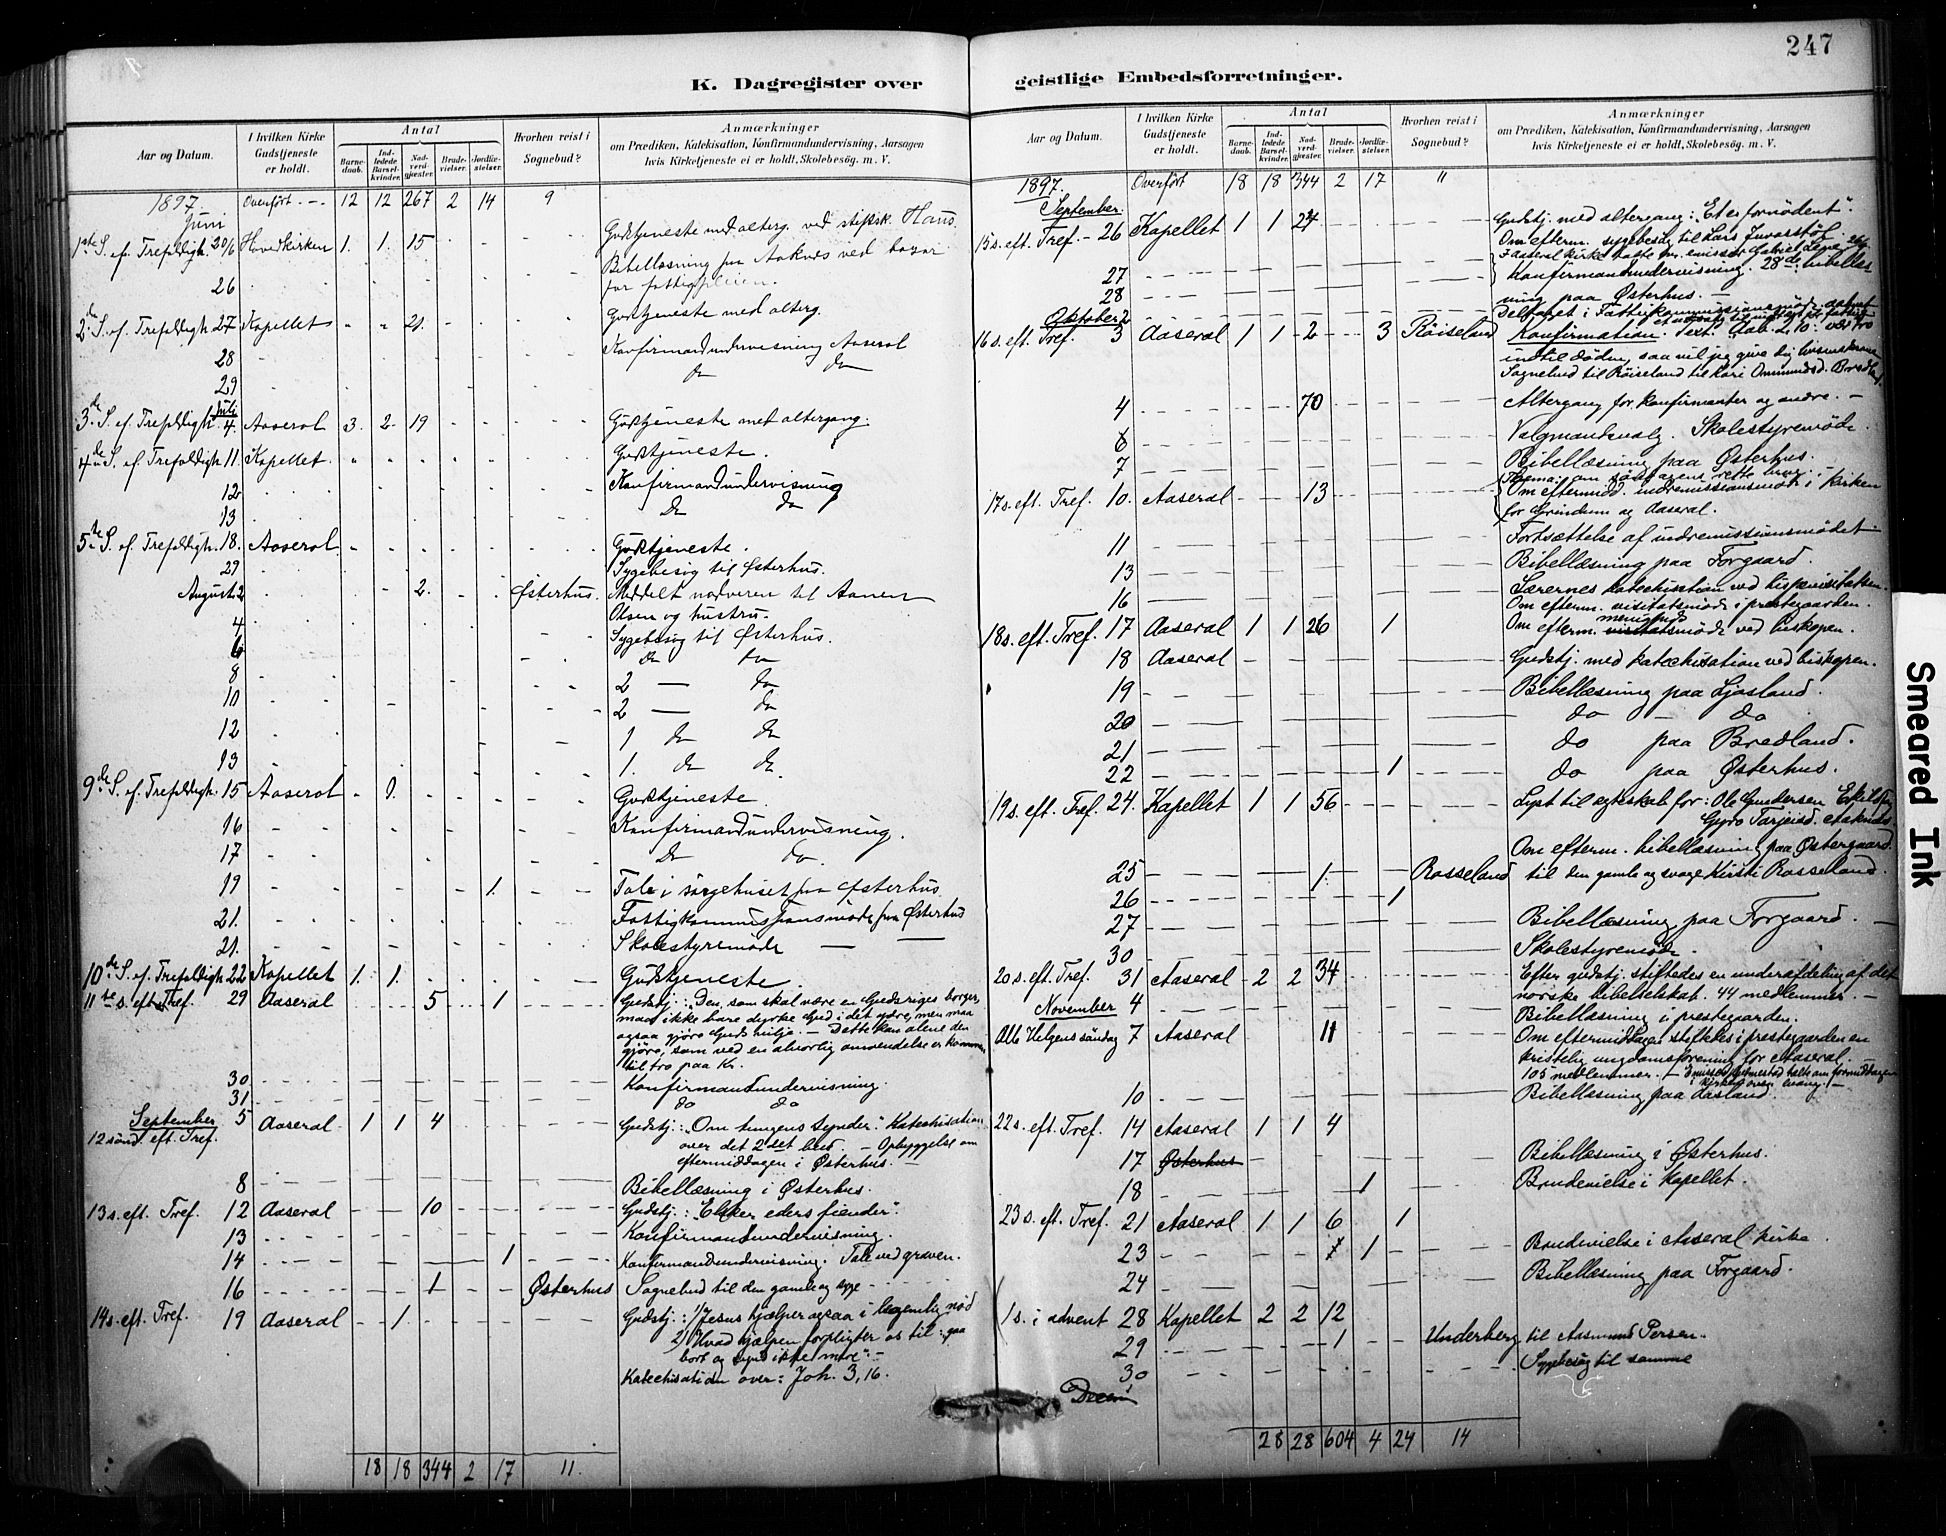 247
K. Dagregister over
geistlige Embedsforretninger.
Aar og Datum.
I hvilken Kirke Gudstjeneste er holdt.
Antal
Barnedaab.
Indledede Barselkvinder.
Nadverdgjæster.
Brudevielser.
Jordfæstelser.
Hvorhen reist i Sognebud?
Anmærkninger
om Prædiken, Katekisation, Konfirmandundervisning, Aarsagen
hvis Kirketjeneste ei er holdt, Skolebesøg. m. V.
1897. Overført 12 12 267 2 14 9
Juni
1ste S. ef. Trefoldigh. 20/6 Hovedkirken 1. 1. 15 Gudstjeneste med alterg. ved
Bibellæsning paa Aaknes ved
26 for
2den S. ef. Trefoldigh. 27 Kapellet 21. Gudstjeneste med alterg.
28 Konfirmandundervisning Aaserol
29 do do
Juli
3de S. ef. Trefoldigh. 4. Aaserol 3. 2 19 Gudstjeneste med altergang.
4de S. ef. Trefoldigh. 11. Kapellet Gudstjeneste.
12 Konfirmandundervisning
13 do do
5te S. ef. Trefoldigh. 18. Aaserol Gudstjeneste.
29 Sygebesøg til Østerhus.
August 2 2. Østerhus. Meddelt nadveren til Aanen
Olsen og hustru.
4 Sygebesøg til Østerhus.
6 do do
8 2 — do
10 2 — do
12 1 do do
13 1. do do
9de S. ef. Trefoldigh. 15 Aaserol Gudstjeneste.
16 Konfirmandundervisning.
17 do do
19 1. Tale i sørgehuset paa Østerhus
21. Fattigkommissionsmøde paa Østerhus
21. Skolestyremøde — —
10de S. ef. Trefoldigh. 22 Kapellet 1. 1. Gudstjeneste.
11te s. eft. Tref. 29 Aaseral 5 1 Gudstj.: "Den, som skal være en Guds riges borger,
maa ikke bare dyrke Gud i det ydre, men maa
ogsaa gjøre Guds vilje. — Dette kan alene den
gjøre, som ved en alvorlig omvendelse er kommen
til tro paa Kr.
30 Konfirmandundervisning.
31 do do
September 5 Aaseral 1 1 4 Gudstj.: "Om tungens synder." Katechisation
12 sønd. eft. Tref. over det 2det bud. — Opbyggelse om
eftermiddagen i Østerhus. —
8 Bibellæsning i Østerhus.
13 s. eft. Tref. 12 Aaseral 10 Gudstj.: "Elsker eders fiender".
13 Konfirmandundervisning.
14 1 Konfirmandundervisning. Tale ved graven.
16 1 Østerhus Sognebud til den gamle og syge
14 s. eft. Tref. 19 Aaseral 1 Gudstj.: 1) Jesus hjælper ogsaa i legemlig nød
2) Hvad hjælpen forpligter os til: "gaa
bort og synd ikke mere". —
Katechisation over: Joh. 3, 16.
18 18 344 2 17 11.
Aar og Datum.
I hvilken Kirke Gudstjeneste er holdt.
Antal
Barnedaab.
Indledede Barselkvinder.
Nadverdgjæster.
Brudevielser.
Jordfæstelser.
Hvorhen reist i Sognebud?
Anmærkninger
om Prædiken, Katekisation, Konfirmandundervisning, Aarsagen
hvis Kirketjeneste ei er holdt, Skolebesøg. m. V.
1897. Overført 18 18 344 2 17 "
September. Gudstj. med altergang: "Et er fornødent".
15 s. eft. Tref. 26 Kapellet 1 1 24 Om efterm. sygebesøg til Lars
27 Konfirmandundervisning. 28de bibellæs
28 ning paa Østerhus. —
Oktober 2 Deltaget i Fattigkommissionsmøde
16 s. eft. Tref. 3 Aaseral 1 1 2 3 Røiseland Konfirmation. Text: Aab. 2, 10: vær tro
indtil døden, saa vil jeg give dig livsens krone
Sognebud til Røiseland til Kari Ommundsd. Bredland.
4 70 Altergang for konfirmanter og andre. —
6 Valgmandsvalg. Skolestyremøde.
7 Bibellæsning paa Østerhus.
17 s. eft. Tref. 10. Aaseral 13 Om eftermidd. indremissionsmøde i kirken
for Grindum og Aaseral.
11 Fortsættelse af indremissionsmødet
13 Bibellæsning paa Forgaard.
16 Lærernes katechisation ved bispevisitatsen.
Om efterm. visitatsmøde i prestegaarden.
18 s. eft. Tref. 17 Aaseral 1 1 26 1 Om efterm. menighedsmøde ved biskopen.
18 Aaseral Gudstj. med katechisation ved biskopen.
19 Bibellæsning paa Ljosland.
20 do — do
21 do paa Bredland.
22 1 do paa Østerhus.
19 s. eft. Tref. 24. Kapellet 1 1 56 Lyst til egteskab for: Ole Gundersen
Gyro Tarjeisd. Aaknes
Om efterm. bibellæsning paa Østergaard.
25 1. Rosseland til den gamle og svage Kirsti Rosseland.
26 1
27 Bibellæsning paa Forgaard. —
30 Skolestyremøde.
20 s. eft. Tref. 31 Aaseral 2 2 34 Efter gudstj. stiftedes en underafdeling af det
norske bibelselskab. 44 medlemmer. —
November 4 Bibellæsning i prestegaarden.
Alle Helgens søndag 7 Aaseral 11 Om eftermiddagen stiftedes i prestegaarden en
kristelig ungdomsforening for Aaseral. —
105 medlemmer.
10 Bibellæsning paa Aasland.
22 s. eft. Tref. 14 Aaseral 1 1 4
17 Østerhus Bibellæsning i Østerhus.
18 1 Brudevielse i kapellet.
23 s. eft. Tref. 21 Aaseral 1 1 6 1
23 1 Brudevielse i Aaseral kirke.
24 Bibellæsning paa Forgaard.
1 s. i advent 28 Kapellet 2 2 12
29 1 Underberg til Aasmund Persen.
30 Sygebesøg til samme
28 28 604 4 24 14
Smeared Ink